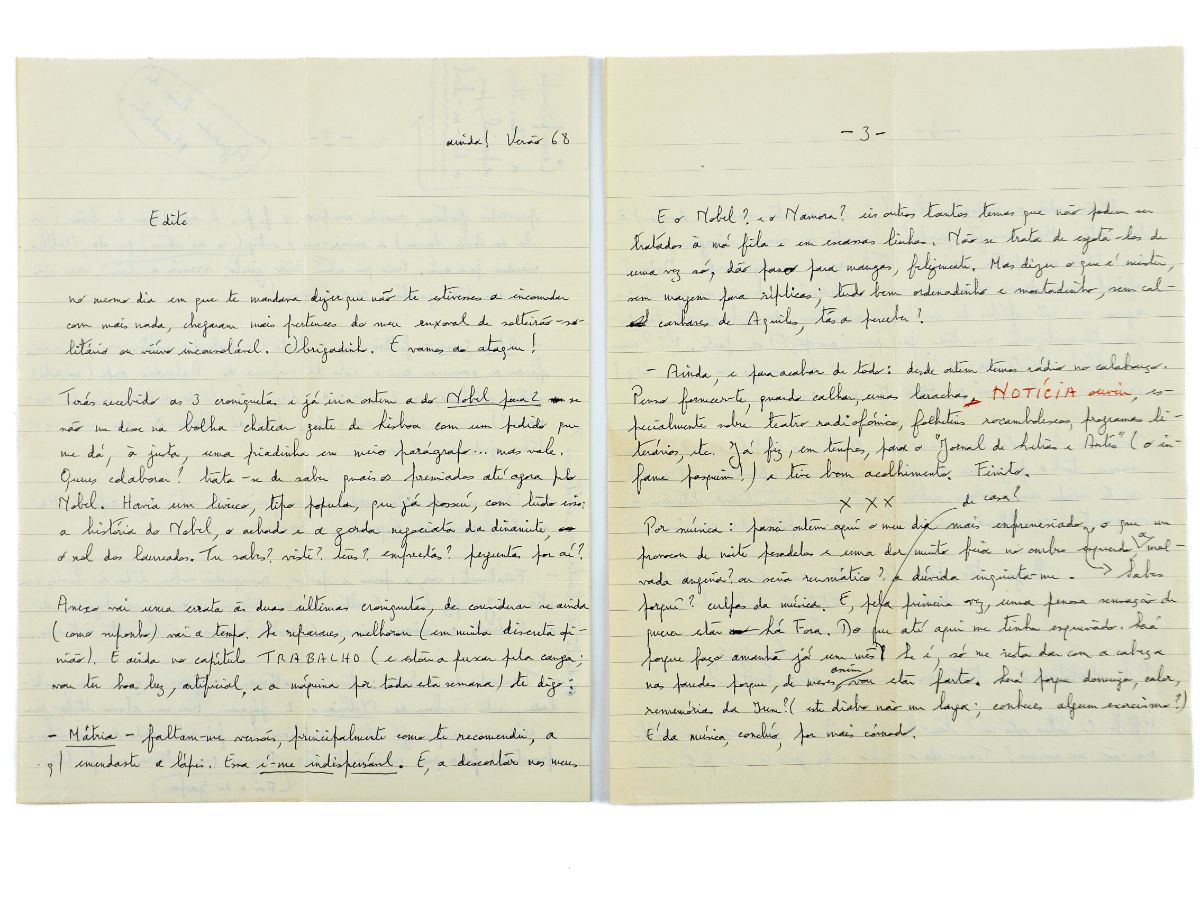 ainda! Verão 68
Edite
no mesmo dia em que te mandava dizer que não te estivesses a incomodar
com mais nada, chegaram mais pertences do meu enxoval de solteirão-so-
litário ou viúvo inconsolável. Obrigadinho. E vamos ao ataque!
Terás recebido as 3 croniquetas e já iria ontem a do Nobel para? se
não me desse na bolha chatear gente de Lisboa com um pedido que
me dá, à justa, uma piadinha em meio parágrafo... mas vale.
Queres colaborar? trata-se de saber quais os premiados até agora pelo
Nobel. Havia um livreco, tipo popular, que já possuí, com tudo isso:
a história do Nobel, o achado e a gorda negociata da dinamite,
o rol dos laureados. Tu sabes? viste? tens? emprestas? perguntas por aí?
Anexo vai uma errata às duas últimas croniquetas, de considerar se ainda
(como suponho) vai a tempo. Se reparares, melhoram (em minha discreta opi-
nião). E ainda no capítulo TRABALHO (e estão a puxar pela canga;
vou ter boa luz, artificial, e a máquina por toda esta semana) te digo:
- Mátria - faltam-me versões, principalmente como te recomendei, a
q| emendaste a lápis. Essa é-me indispensável. E, a descontar nos meus
- 3 -
E o Nobel? e o Namora? eis outros tantos temas que não podem ser
tratados à má fila e em escassas linhas. Não se trata de esgotá-los de
uma vez só, dão pano para mangas, felizmente. Mas dizer o que é mister,
sem margem para réplicas; tudo bem ordenadinho e montadinho, sem cal-
canhares de Aquiles, tás a perceber?
- Ainda, e para acabar de todo: desde ontem temos rádio no calabouço.
Penso fornecer-te, quando calhar, umas larachas, NOTÍCIA ouvir, es-
pecialmente sobre teatro radiofónico, folhetins rocambolescos, programas li-
terários, etc. Já fiz, em tempos, para o "Jornal de Letras e Artes" (o in-
fame pasquim!) e tive bom acolhimento. Finito.
x x x
de casa?
Por música: passei ontem aqui o meu dia mais enfrenesiado, o que me
provocou de noite pesadelos e uma dor muito feia no ombro esquerdo, a mal-
vada angina? ou seria reumático? a dúvida inquieta-me. Sabes
porquê? culpas da música. E, pela primeira vez, uma penosa sensação de
querer estar Lá Fora. Do que até aqui me tinha esquivado. Será
porque faço amanhã já um mês? Se é, só me resta dar com a cabeça
nas paredes porque, de meses assim, vou estar farto. Será porque domingo, calor,
rememórias da Iren? (este diabo não me larga; conheces algum exorcismo?)
É da música, concluo, por mais cómodo.